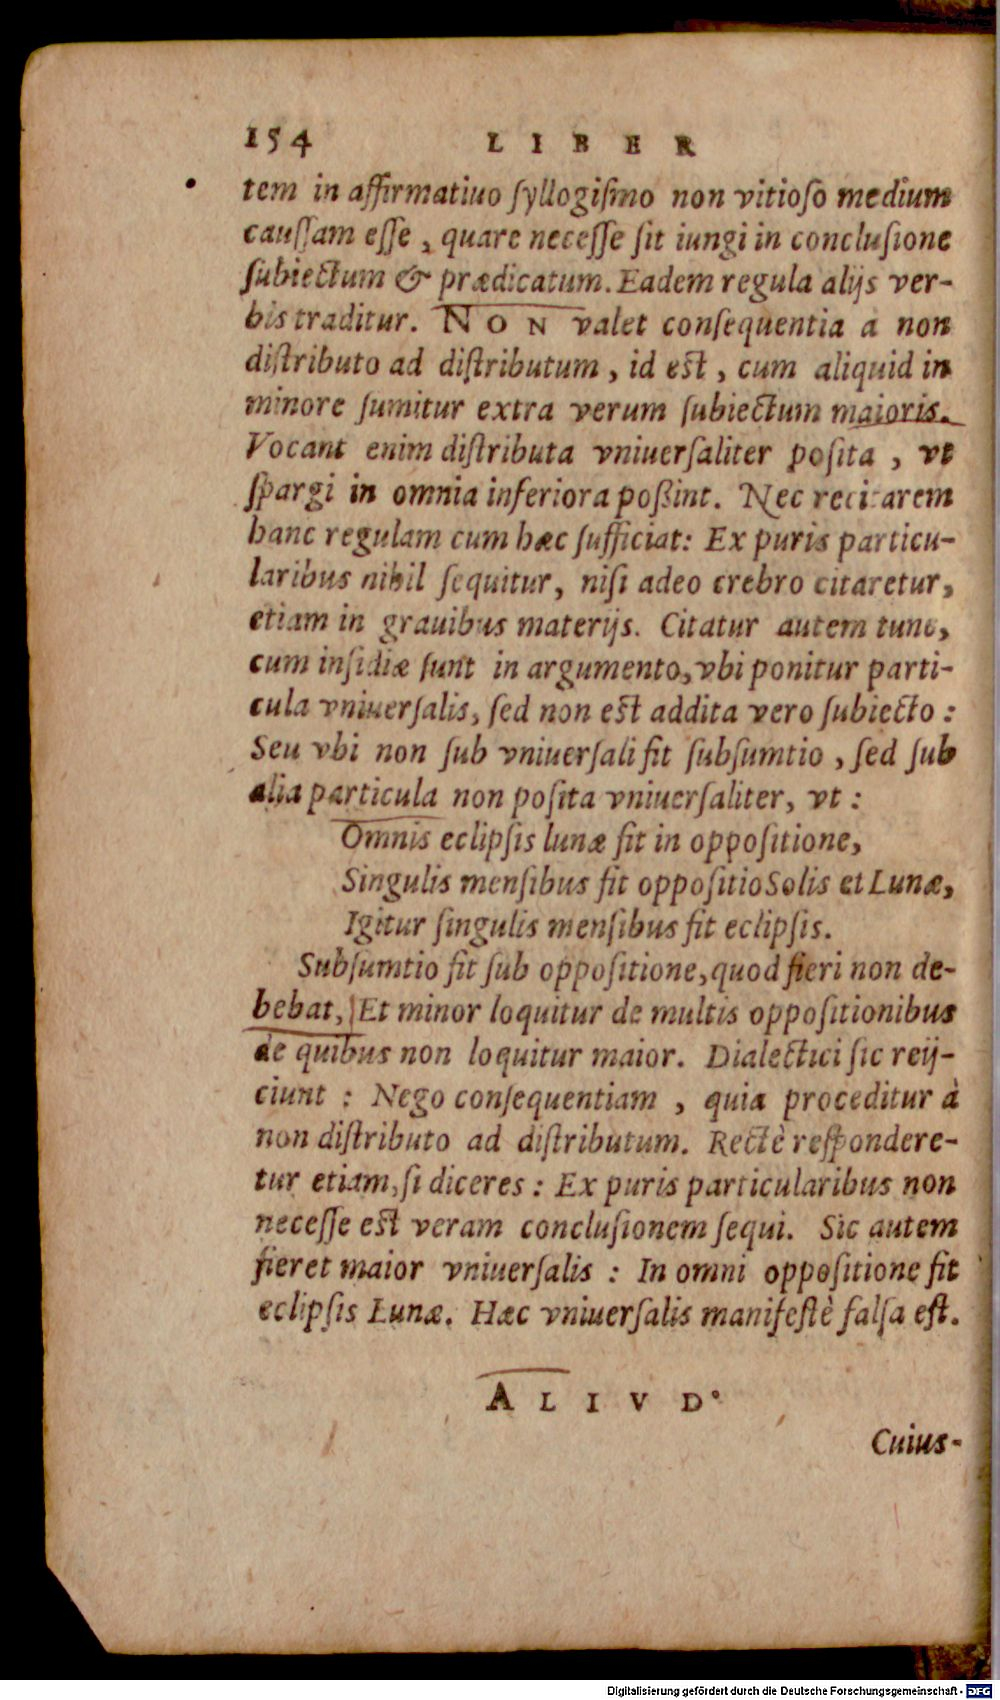 154 LIBER
tem in affirmatiuo ſyllogiſmo non vitioſo medium
cauſſam eſſe, quare neceſſe ſit iungi in concluſione
ſubiectum & prædicatum. Eadem regula alijs ver-
bis traditur. NON valet conſequentia a non
diſtributo ad diſtributum, id eſt, cum aliquid in
minore ſumitur extra verum ſubiectum maioris.
Vocant enim diſtributa vniuerſaliter poſita, vt
ſpargi in omnia inferiora poßint. Nec recitarem
hanc regulam cum hæc ſufficiat: Ex puris particu-
laribus nihil ſequitur, niſi adeo crebro citaretur,
etiam in grauibus materijs. Citatur autem tunc,
cum inſidiæ ſunt in argumento, vbi ponitur parti-
cula vniuerſalis, ſed non eſt addita vero ſubiecto:
Seu vbi non ſub vniuerſali fit ſubſumtio, ſed ſub
alia particula non poſita vniuerſaliter, vt:
Omnis eclipſis lunæ fit in oppoſitione,
Singulis menſibus fit oppoſitio Solis et Lunæ,
Igitur ſingulis menſibus fit eclipſis.
Subſumtio fit ſub oppoſitione, quod fieri non de-
bebat, Et minor loquitur de multis oppoſitionibus
de quibus non loquitur maior. Dialectici ſic reij-
ciunt: Nego conſequentiam, quia proceditur à
non diſtributo ad diſtributum. Rectè reſpondere-
tur etiam, ſi diceres: Ex puris particularibus non
neceſſe eſt veram concluſionem ſequi. Sic autem
fieret maior vniuerſalis: In omni oppoſitione fit
eclipſis Lunæ. Hæc vniuerſalis manifeſtè falſa eſt.
ALIVD.
Cuius-
Digitalisierung gefördert durch die Deutsche Forschungsgemeinschaft - DFG